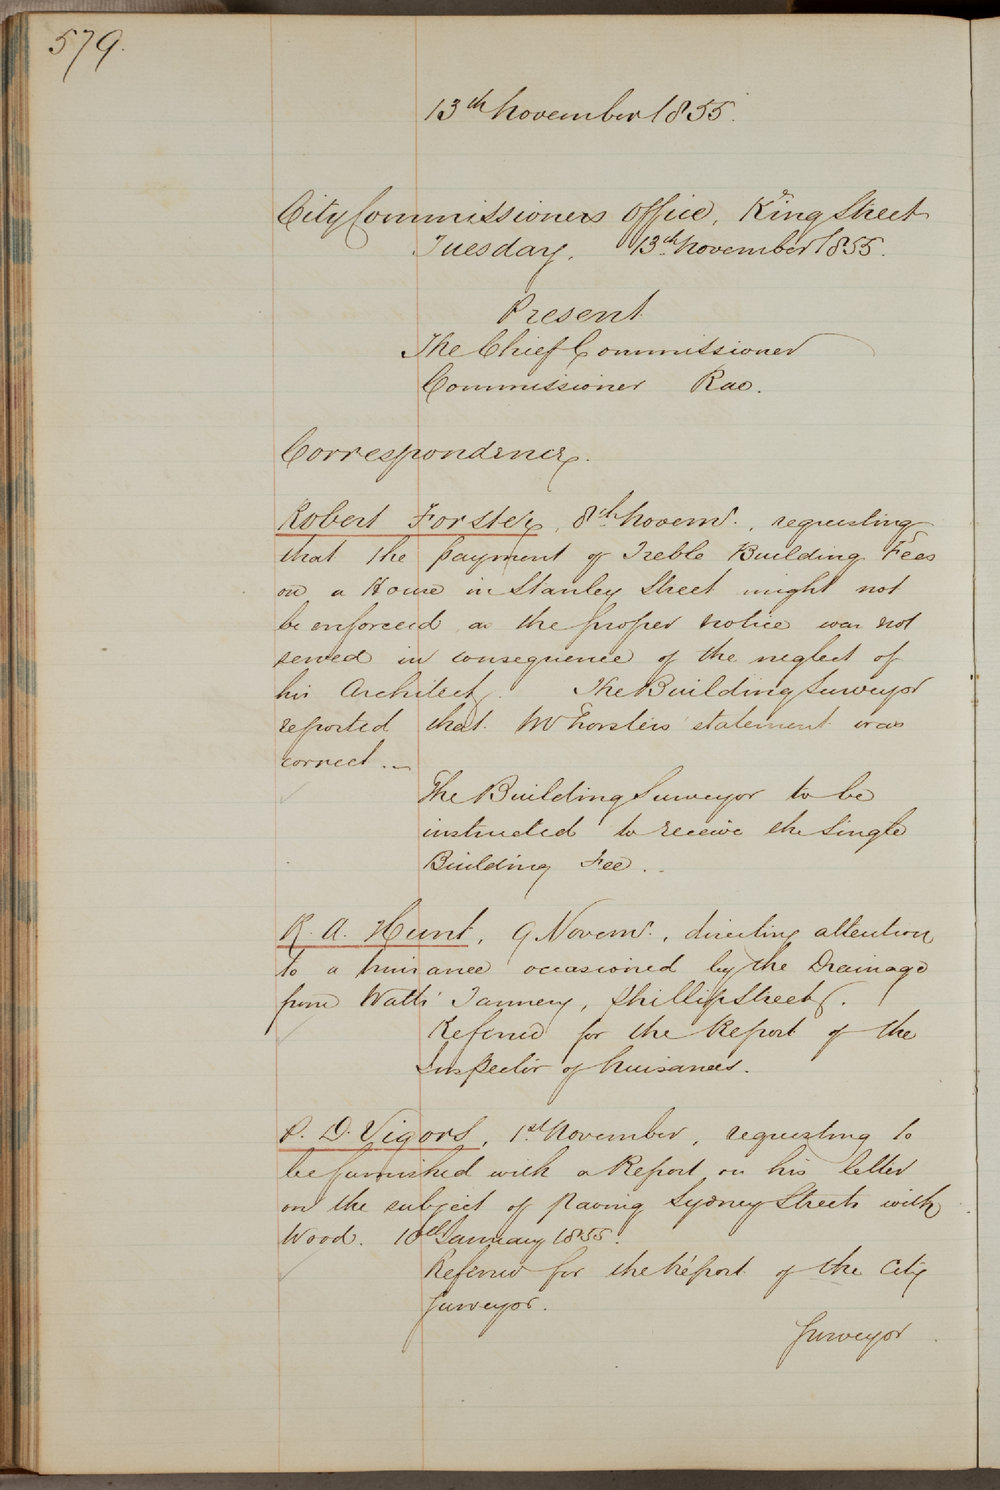 579.
13th November 1855.
City Commissioners Office, King Street
Tuesday, 13th November 1855.
Present
The Chief Commissioner
Commissioner Rae.
Correspondence.
Robert Forster, 8th Novemr., requesting
that the payment of Treble Building Fees
on a House in Stanley Street might not
be enforced as the proper notice was not
served in consequence of the neglect of
his Architect. The Building Surveyor
reported that Mr Forsters statement was
correct.
The Building Surveyor to be
instructed to receive the Single
Building Fee.
R. A. Hunt, 9 Novemr., directing attention
to a nuisance occasioned by the Drainage
from Watts' Tannery, Phillip Street.
Referred for the Report of the
Inspector of Nuisances.
P. D. Vigors, 1st November, requesting to
be furnished with a Report on his letter
on the subject of paving Sydney Streets with
Wood. 10th January 1855.
Referred for the Report of the City
Surveyor.
Surveyor